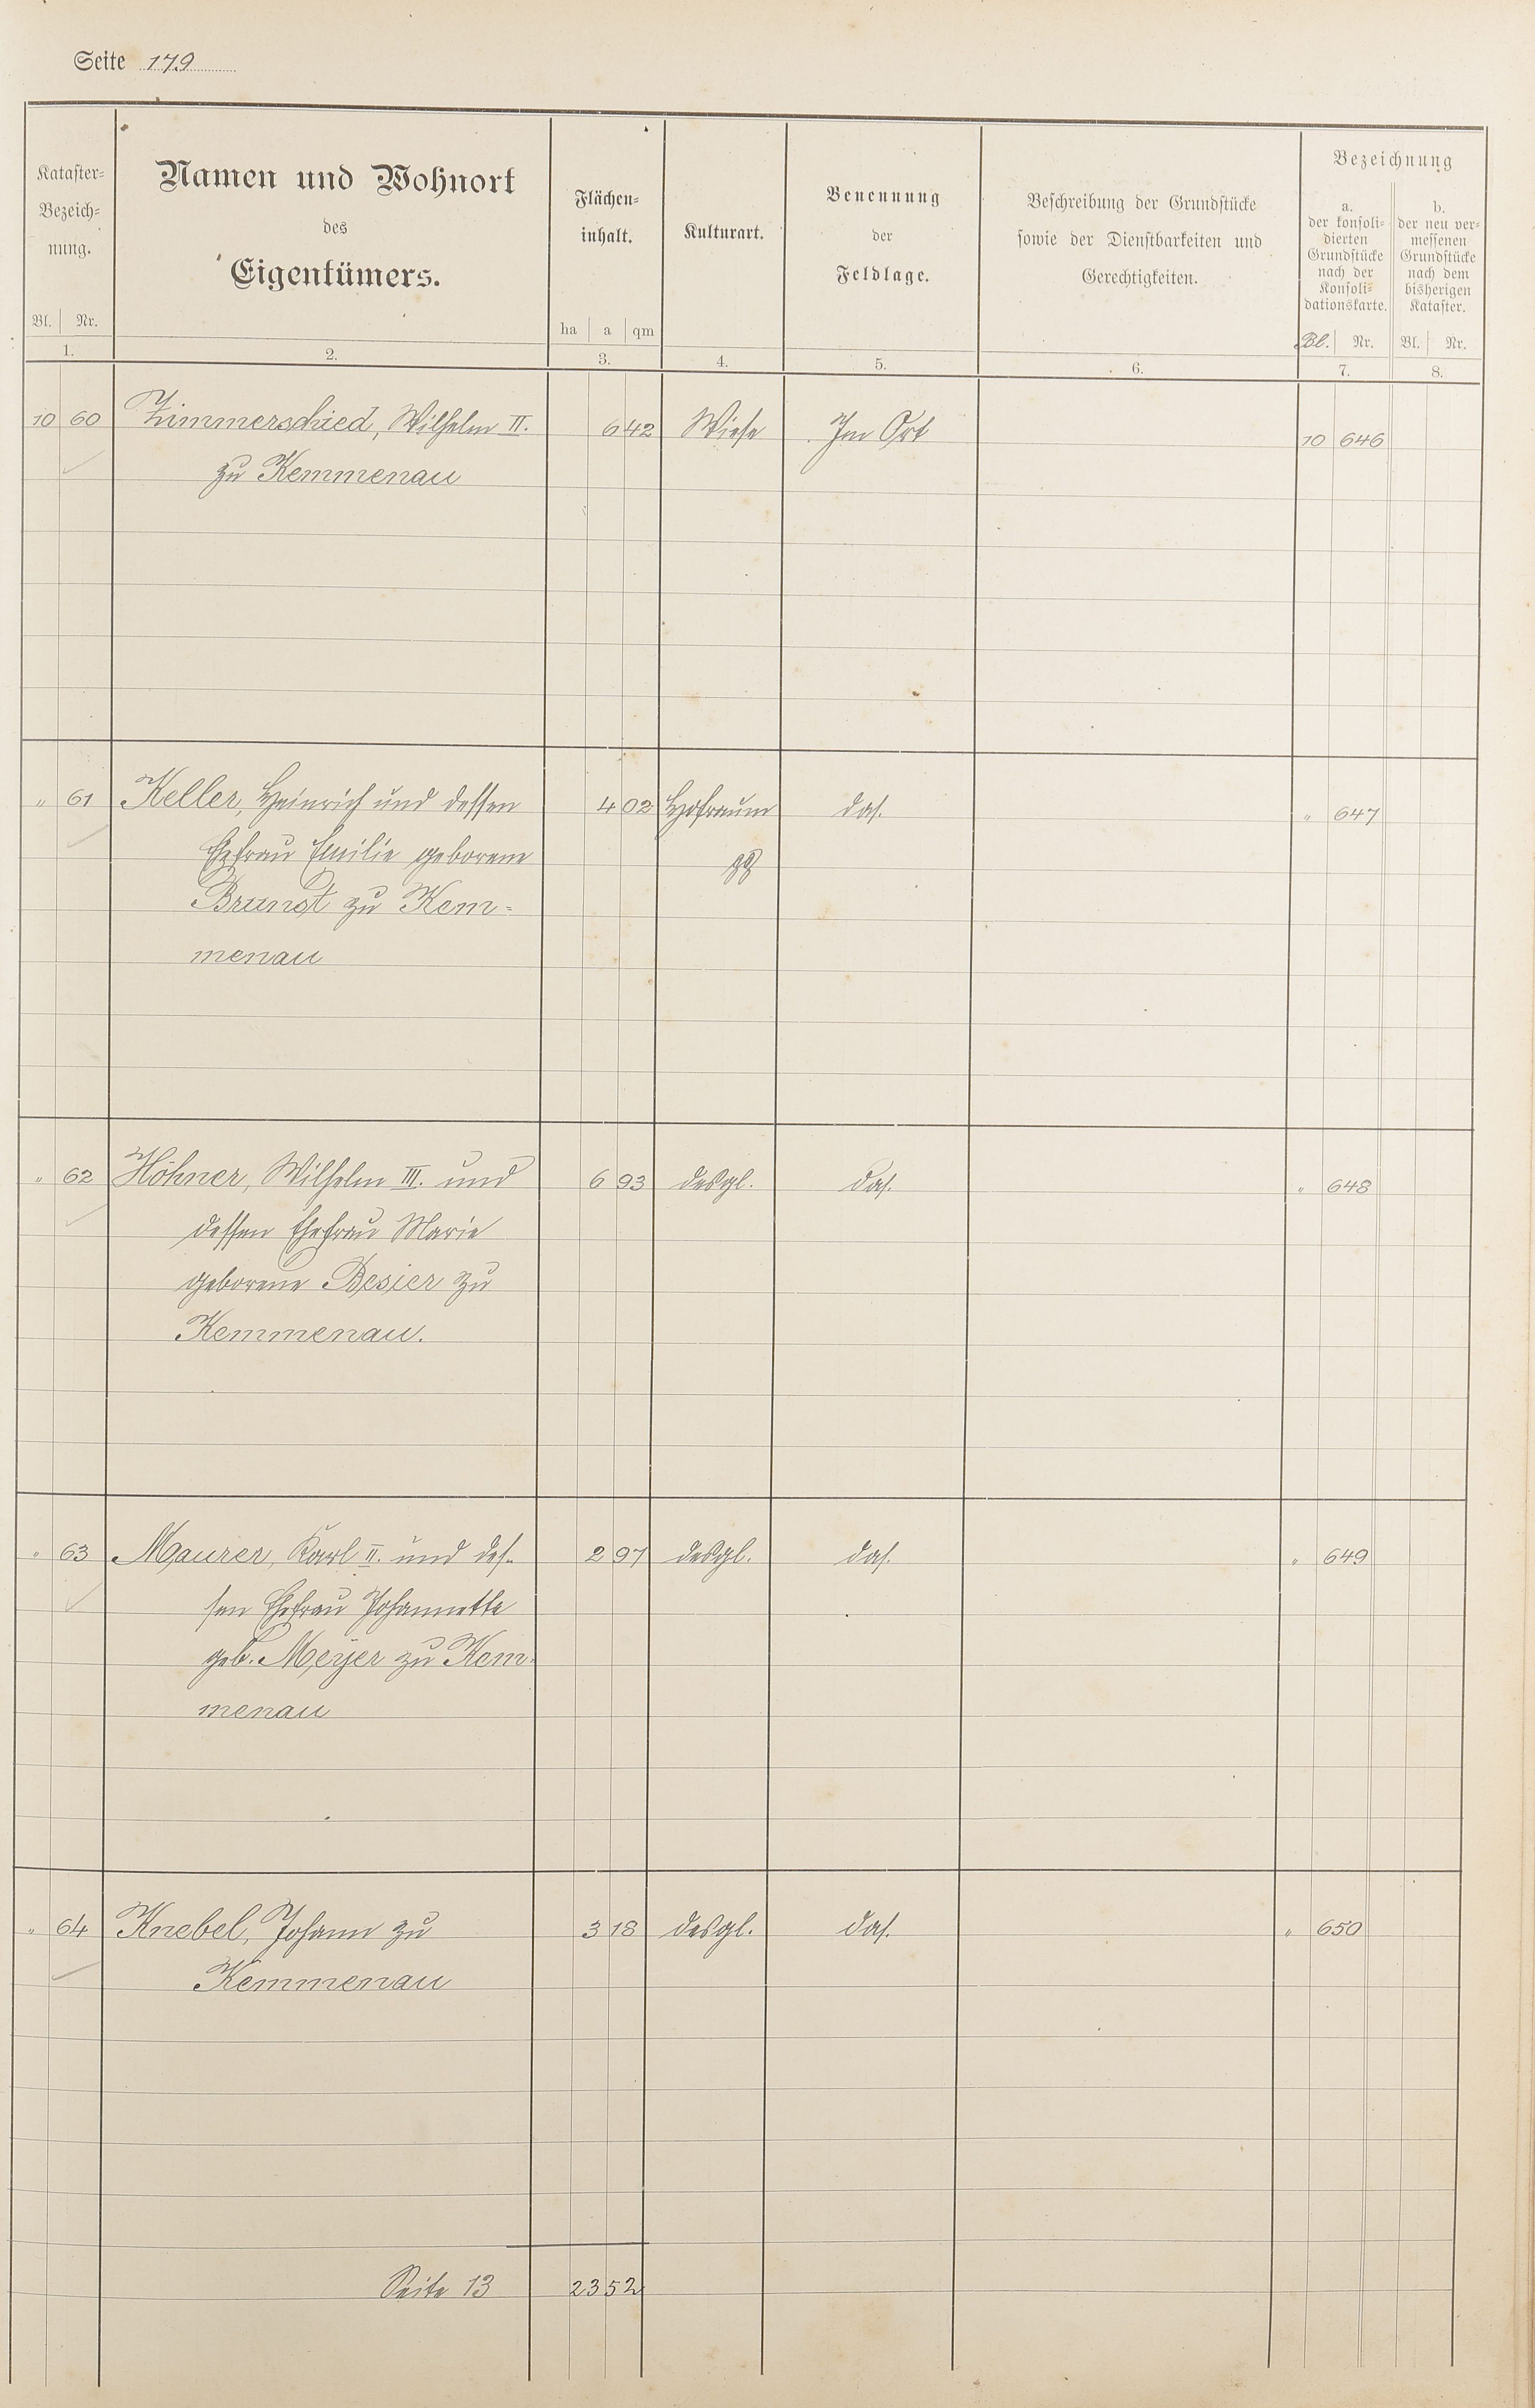 Seite 179
Kataster-
Bezeich-
nung.
Bl. Nr.
1.
Namen und Wohnort
des
Eigentümers.
2.
Flächen-
inhalt.
ha a qm
3.
Kulturart.
4.
Benennung
der
Feldlage.
5.
Beschreibung der Grundstücke
sowie der Dienstbarkeiten und
Gerechtigkeiten.
6.
Bezeichnung
a.
der konsoli-
dierten
Grundstücke
nach der
Konsoli-
dationskarte.
Bl. Nr.
7.
b.
der neu ver-
messenen
Grundstücke
nach dem
bisherigen
Kataster.
Bl. Nr.
8.
10 60 Zimmerschied, Wilhelm II. 6 42 Wiese Im Ort 10 646
zu Kemmenau
" 61 Keller, Heinrich und dessen 4 02 Hofraum das. " 647
Ehefrau Emilie geborene
Brundt zu Kem-
menau
" 62 Höhner, Wilhelm III. und 6 93 desgl. das. " 648
dessen Ehefrau Marie
geborene Besier zu
Kemmenau.
" 63 Maurer, Karl II. und des- 2 97 desgl. das. " 649
sen Ehefrau Johannette
geb. Meyer zu Kem-
menau
" 64 Knebel, Johann zu 3 18 desgl. das. " 650
Kemmenau
Seite 13 23 52